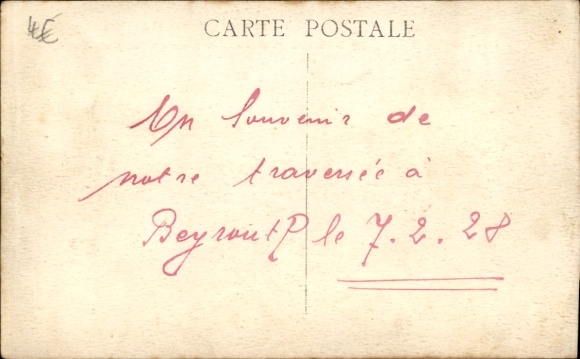 4€
CARTE POSTALE
Un Souvenir de
notre traversée à
Beyrouth le 7.2.28